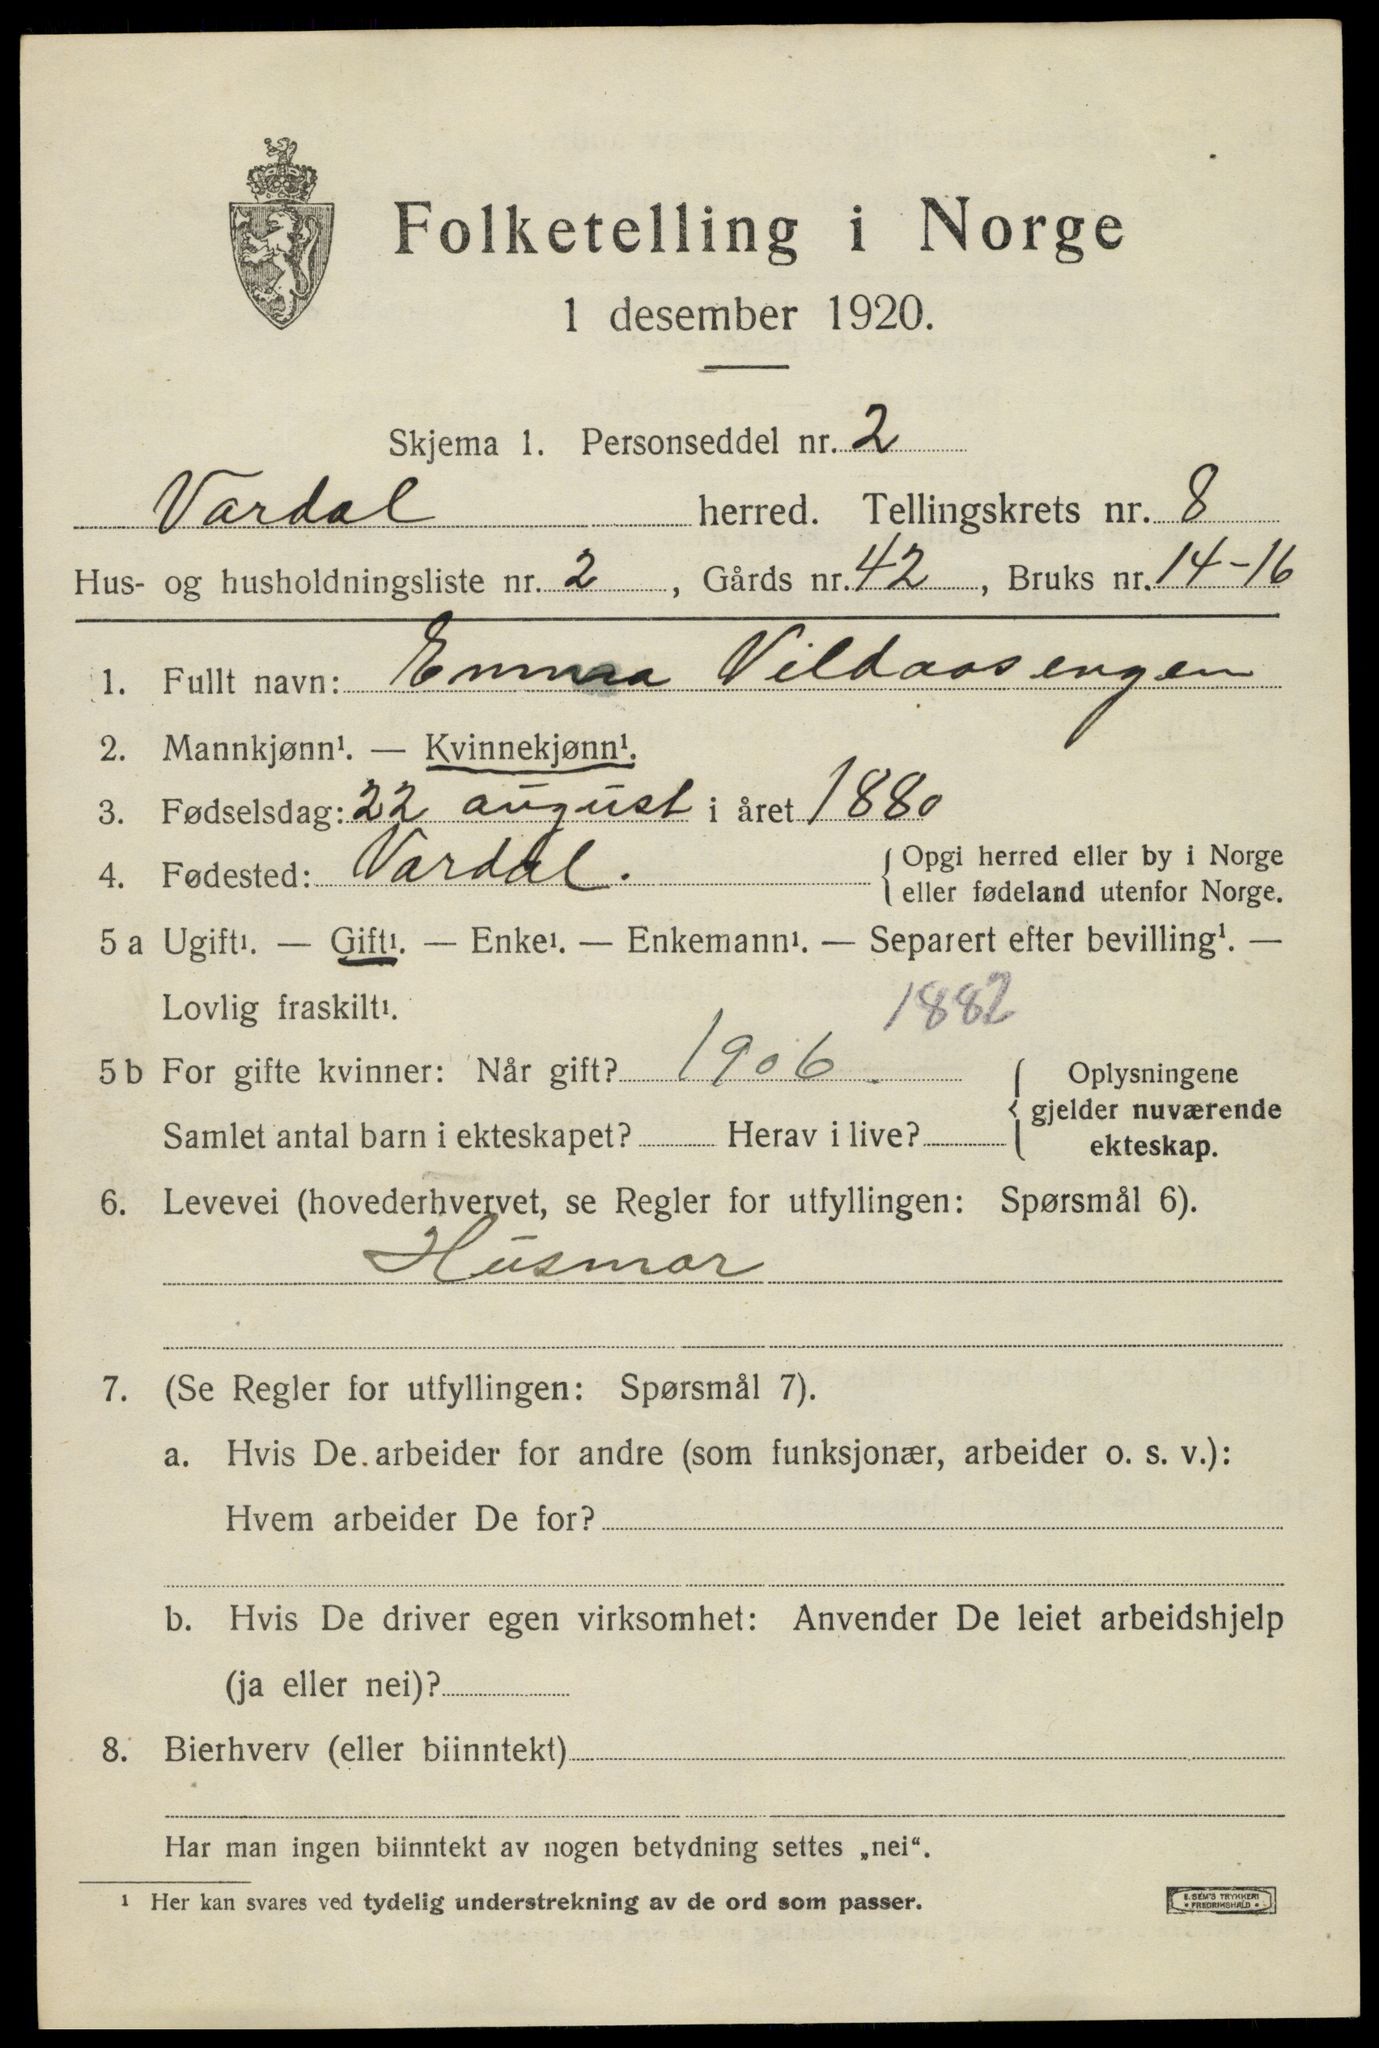 Folketelling i Norge
1 desember 1920.
Skjema 1. Personseddel nr. 2
Vardal herred. Tellingskrets nr. 8
Hus- og husholdningsliste nr. 2, Gårds nr. 42, Bruks nr. 14-16
1. Fullt navn: Emma Vildaasengen
2. Mannkjønn¹. — Kvinnekjønn¹.
3. Fødselsdag: 22 august i året 1880
4. Fødested: Vardal. { Opgi herred eller by i Norge
eller fødeland utenfor Norge.
5 a Ugift¹. — Gift¹. — Enke¹. — Enkemann¹. — Separert efter bevilling¹. —
Lovlig fraskilt¹. 1882
5 b For gifte kvinner: Når gift? 1906 { Oplysningene
gjelder nuværende
Samlet antal barn i ekteskapet? Herav i live?
ekteskap.
6. Levevei (hovederhvervet, se Regler for utfyllingen: Spørsmål 6).
Husmor
7. (Se Regler for utfyllingen: Spørsmål 7).
a. Hvis De arbeider for andre (som funksjonær, arbeider o. s. v.):
Hvem arbeider De for?
b. Hvis De driver egen virksomhet: Anvender De leiet arbeidshjelp
(ja eller nei)?
8. Bierhverv (eller biinntekt)
Har man ingen biinntekt av nogen betydning settes „nei“.
¹ Her kan svares ved tydelig understrekning av de ord som passer.
E. SEM'S TRYKKERI
• FREDRIKSHALD •